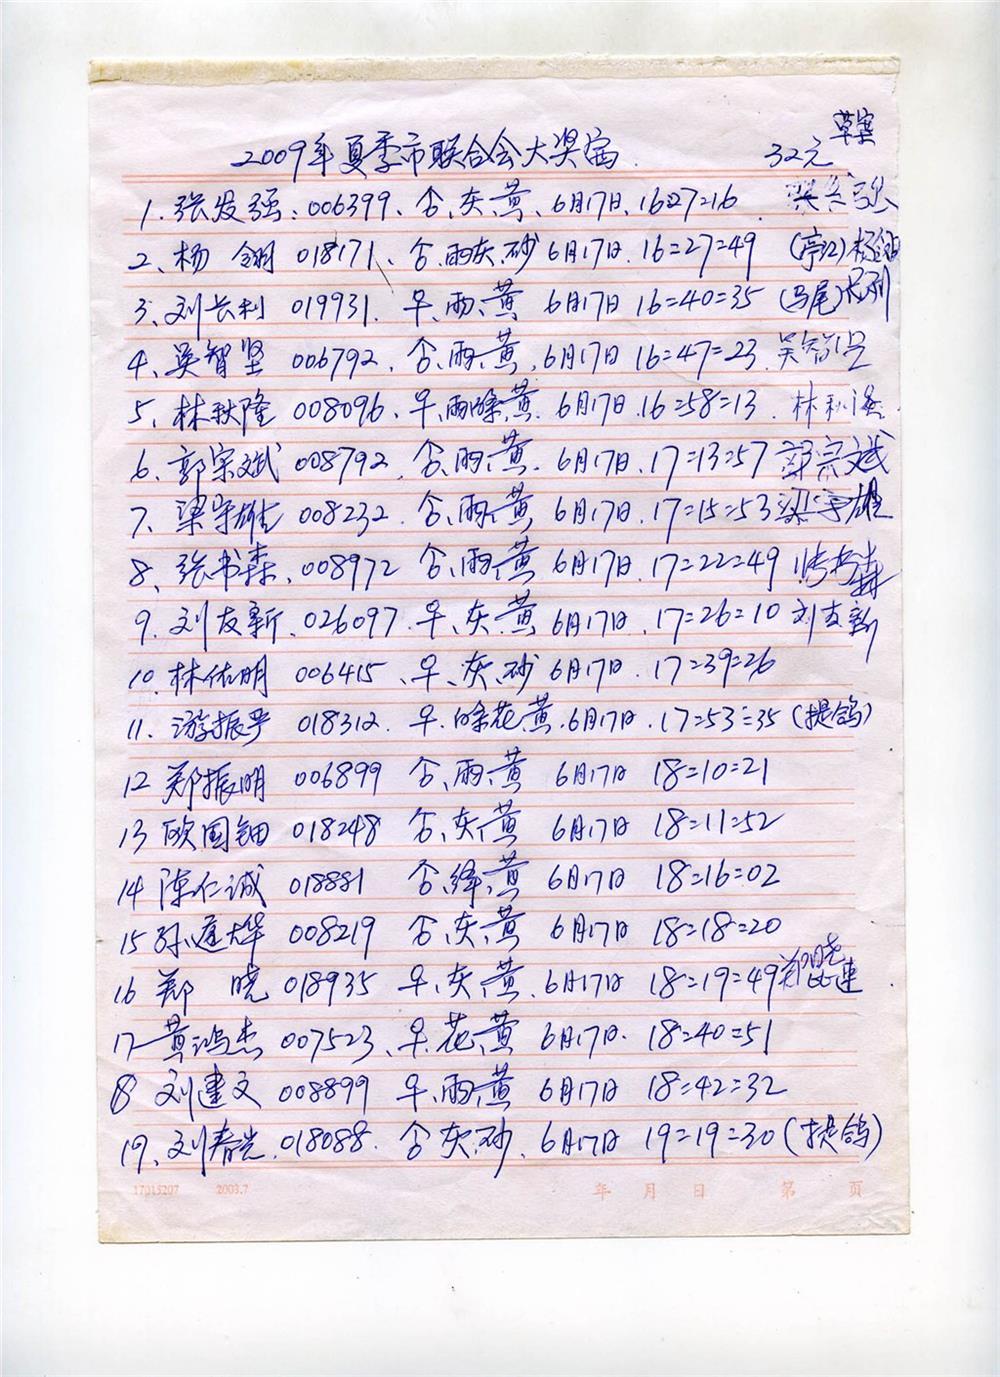 草案
2009年夏季市联合会大奖 32元
1.张发强:006399、否、灰、黄、6月17日.16=27=16
2、杨翎 018171、否、雨灰、砂 6月17日.16=27=49 (亭江)
3、刘长利 019931.早、雨、黄 6月17日 16=40=35 (马尾)
4、吴智坚 006792、否、雨、黄、6月17日 16=47=23
5、林秋隆 008096、早、雨 黄.6月17日.16=58=13 林秋隆
6、郭宗斌 008792、否、雨、黄、6月17日.17=13=57 郭宗斌
7、梁守雄 008232.否、雨、黄 6月17日.17=15=53 梁守雄
8、张书森、008972 否、雨、黄 6月17日.17=22=49 张书森
9、刘友新、026097.早、灰、黄 6月17日.17=26=10 刘友新
10、林依明 006415、早、灰、砂 6月17日.17=39=26
11、游振 018312.早、 花、黄.6月17日.17=53=35 (提鸽)
12 郑振明 006899 否、雨、黄 6月17日 18=10=21
13 欧国钿 018248 否、灰、黄 6月17日 18=11=52
14 陈仁诚 018881 否、绛、黄 6月17日 18=16=02
15 孙 烨 008219 否、灰、黄 6月17日 18=18=20
16 郑晓 018935 早、灰、黄、6月17日 18=19=49 郑晓 建
17 黄鸿杰 007523、早、花、黄 6月17日.18=40=51
18 刘建文 008899 早、雨、黄 6月17日 18=42=32
19、刘春光.018088.否 灰、砂、6月17日 19=19=30 (提鸽)
17015207 2003.7 年 月 日 第 页